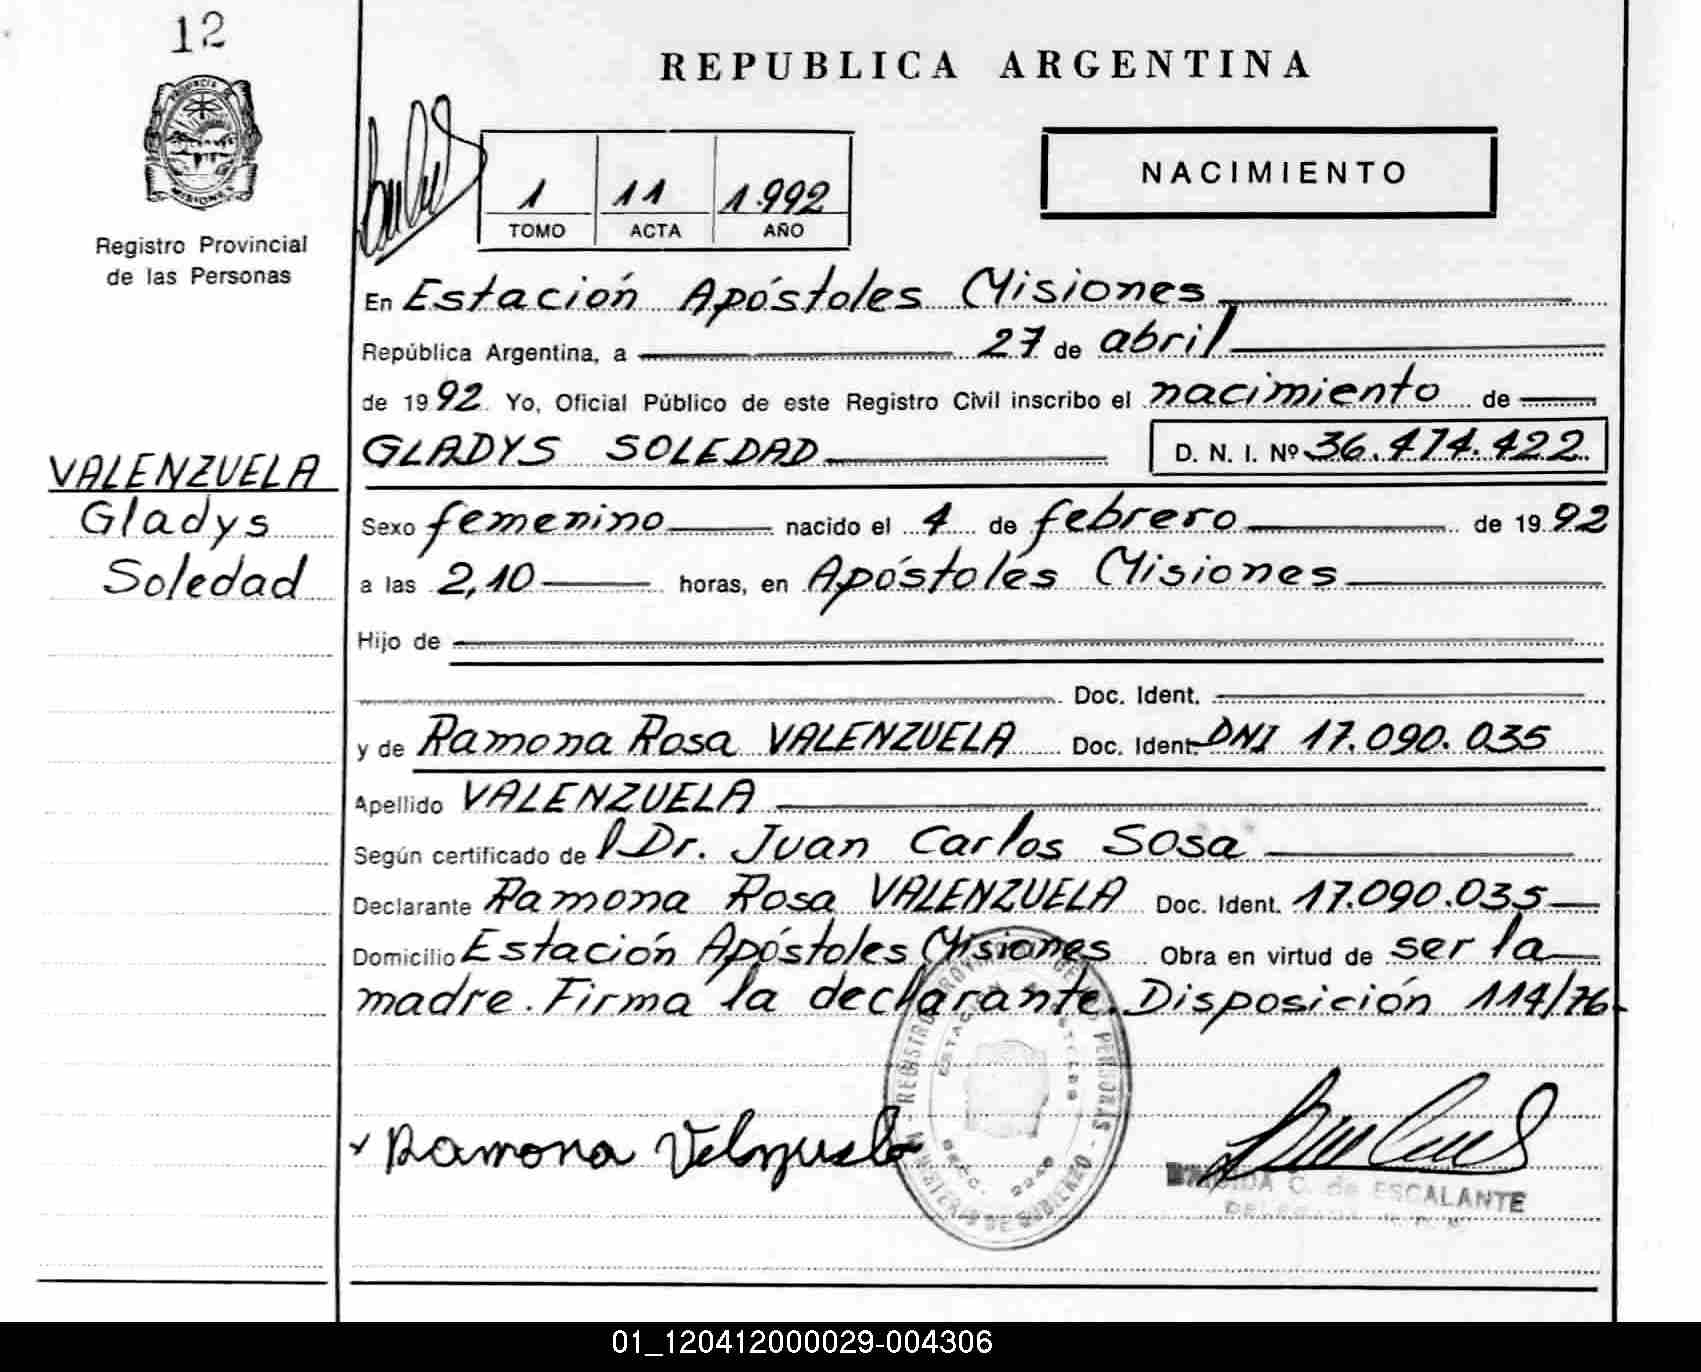 12
REPUBLICA ARGENTINA
NACIMIENTO
1 11 1.992
TOMO ACTA AÑO
Registro Provincial
de las Personas
En Estación Apóstoles Misiones
República Argentina, a 27 de abril
de 1992 Yo, Oficial Público de este Registro Civil inscribo el nacimiento de
GLADYS SOLEDAD D. N. I. Nº 36.474.422
VALENZUELA
Gladys
Soledad
Sexo femenino nacido el 4 de febrero de 1992
a las 2,10 horas, en Apóstoles Misiones
Hijo de
Doc. Ident.
y de Ramona Rosa VALENZUELA Doc. Ident. DNI 17.090.035
Apellido VALENZUELA
Según certificado de l Dr. Juan Carlos Sosa
Declarante Ramona Rosa VALENZUELA Doc. Ident. 17.090.035
Domicilio Estación Apóstoles Misiones Obra en virtud de ser la
madre. Firma la declarante. Disposición 114/76-
REGISTRO PROVINCIAL DE LAS PERSONAS - MINISTERIO DE GOBIERNO -
ESTACION APOSTOLES
SECC. 2240
x Ramona Velazquela
C. de ESCALANTE
01_120412000029-004306